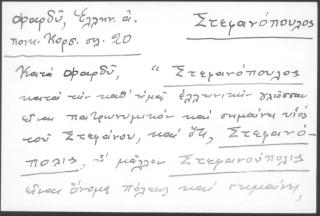 Φαρδῦ, Ἑλλην. ἀ.
ποικ. Κορσ. σελ. 20
Στεφανόπουλος
Κατά Φαρδῦ, "Στεφανόπουλος
κατά τήν καθ' ἡμᾶς ἑλληνικήν γλῶσσαν
εἶναι πατρωνυμικόν καί σημαίνει υἱός
τοῦ Στεφάνου, καί ὅτι, Στεφανό-
πολις, ἤ μᾶλλον Στεφανούπολις
εἶναι ὄνομα πόλεως καί σημαίνει,